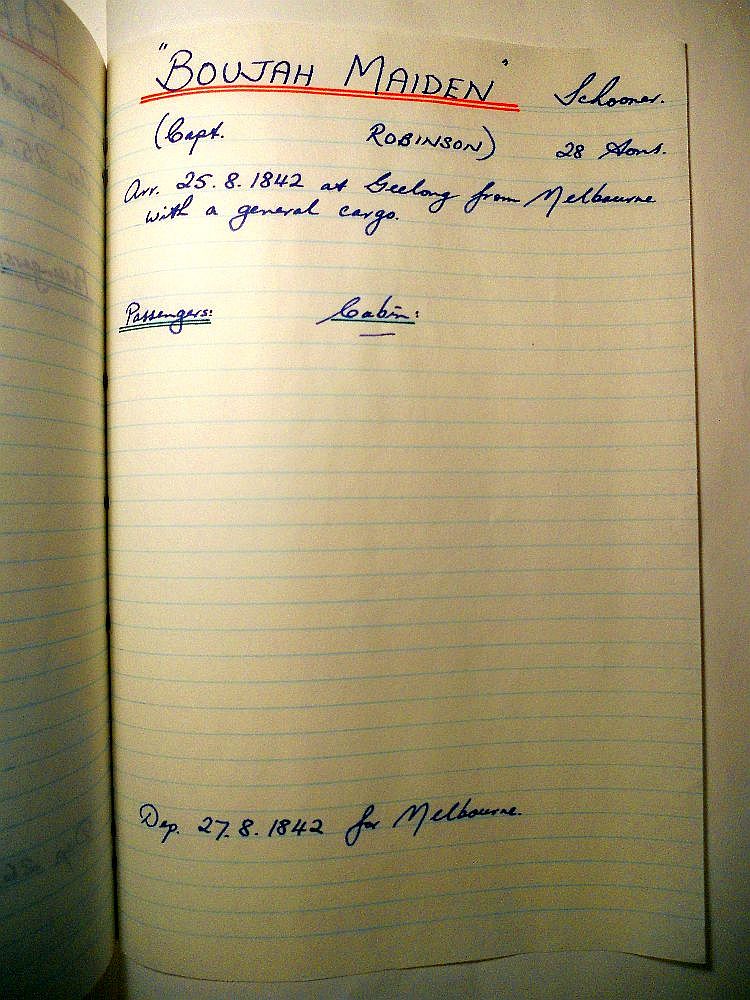 "BOUJAH MAIDEN" Schooner.
(Capt. ROBINSON) 28 tons.
Arr. 25.8.1842 at Geelong from Melbourne
with a general cargo.
Passengers: Cabin:
—
Dep. 27.8.1842 for Melbourne.